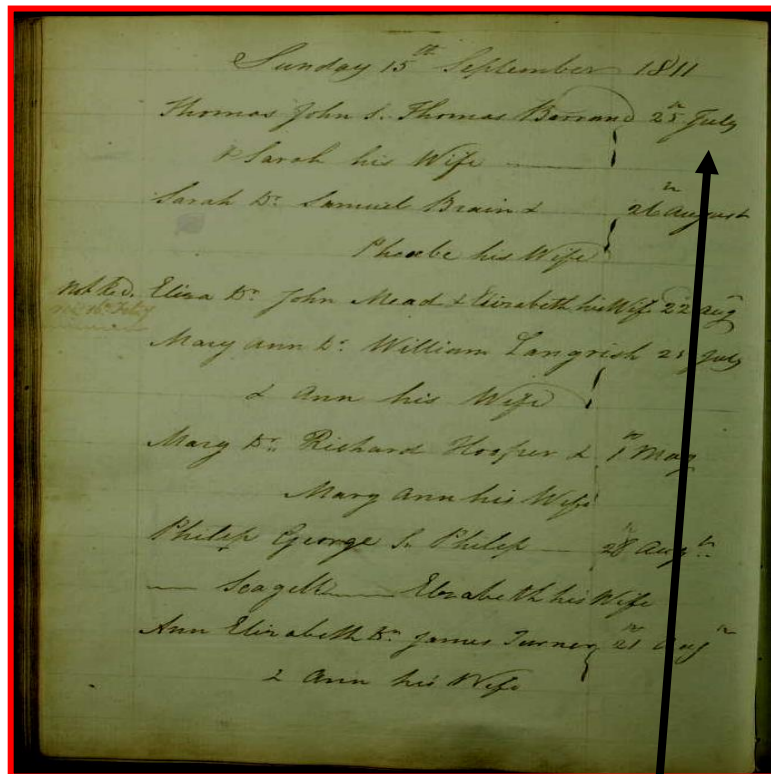 Sunday 15th September 1811
Thomas John S. Thomas Barrand 25 July
& Sarah his Wife
Sarah Dr. Samuel Brain & 26 August
Phoebe his Wife
Not Red. Eliza Dr. John Mead & Elizabeth his Wife 22 Aug
Mary Ann Dr. William Langrish 21 July
& Ann his Wife
Mary Dr. Richard Hooper & 1 May
Mary Ann his Wife
Philip George S. Philip 28 Augt
Seagell Elizabeth his Wife
Ann Elizabeth Dr. James Turner 21 Aug
& Ann his Wife